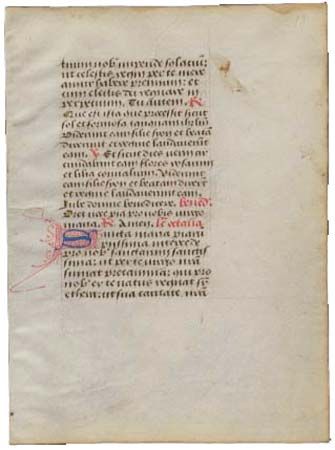 tuum nob impende solaciũ:
ut celestis regni per te mere
amur habere premium: et
cum electis dei regnare in
perpetuum. Tu autem. R
Que est ista que processit sicut
sol et formosa tanquam ihrlm
Viderunt eam filie syon et beatã
dixerunt et regine laudaverunt
eam. V Et sicut dies verni cir
cundabant eam flores rosarum
et lilia convalium. Viderunt
eam filie syon et beatam dixerũt
et regine laudaverunt eam.
Iube domne benedicere. Bened.
pia pro nobis virgo
maria. R Amen. Lc tertia
Sancta maria piarũ
piissima intercede
pro nob sanctarum sanctis
sima: ut per te virgo nrã
sumat precamina: qui pro
nob ex te natus regnat sup
ethera: ut sua caritate nrã